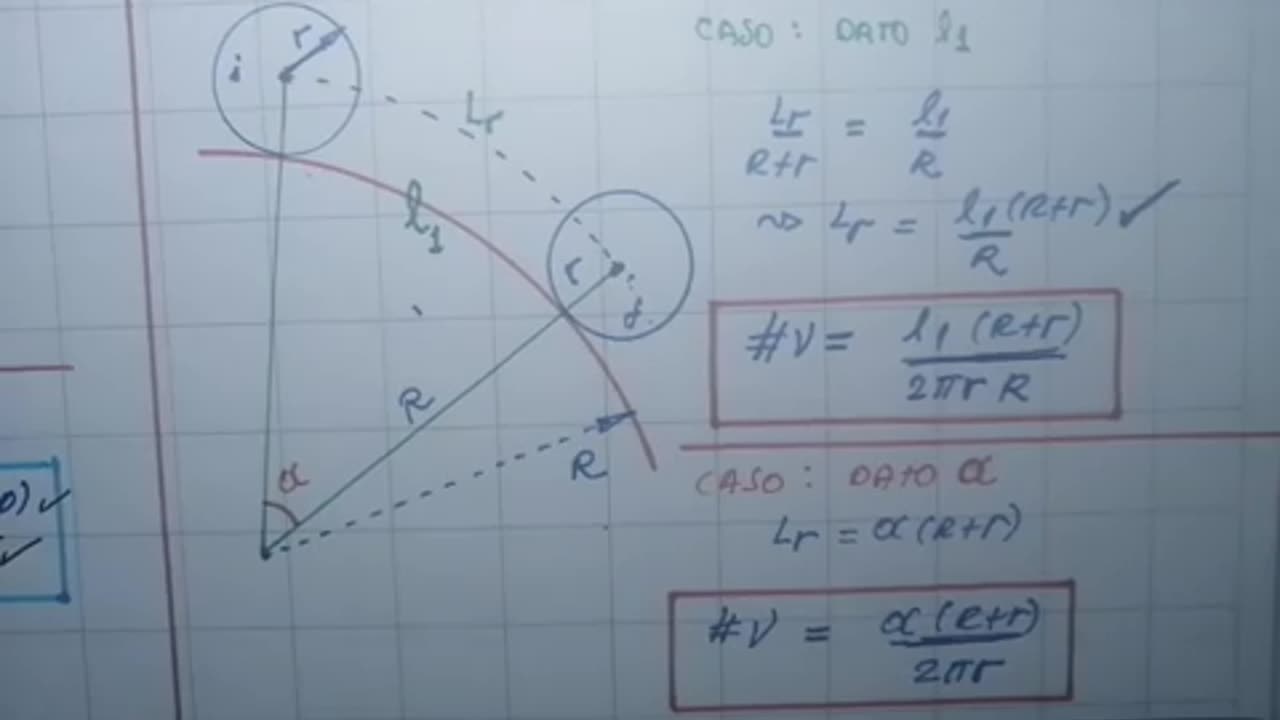 r
i
Lr
l1
r
f
R
α
R
o) ✓
✓
CASO: DATO l1
Lr/R+r = l1/R
~> Lr = l1(R+r)/R ✓
#V = l1 (R+r)/2πr R
CASO: DATO α
Lr = α(R+r)
#V = α(R+r)/2πr